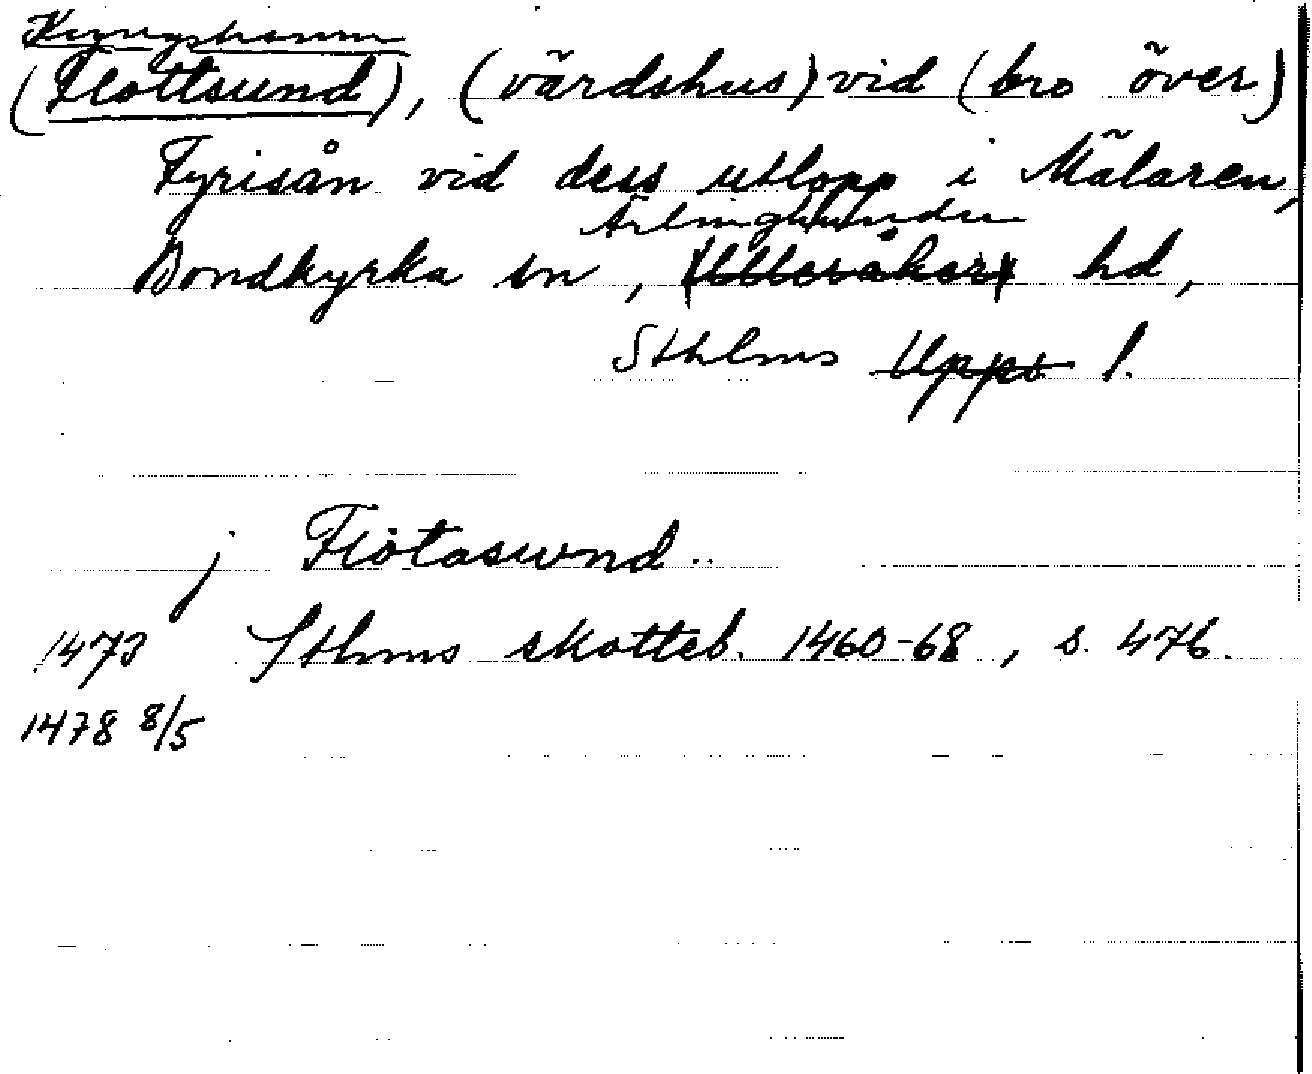 Kungshamn
(Flottsund), (värdshus) vid (bro över)
Fyrisån vid dess utlopp i Mälaren,
Ärlinghundra
Bondkyrka sn, (Ulleråker) hd,
Sthlms Upps l.
j Flötasund..
1473 Sthms skatteb. 1460-68, s. 476.
1478 8/5